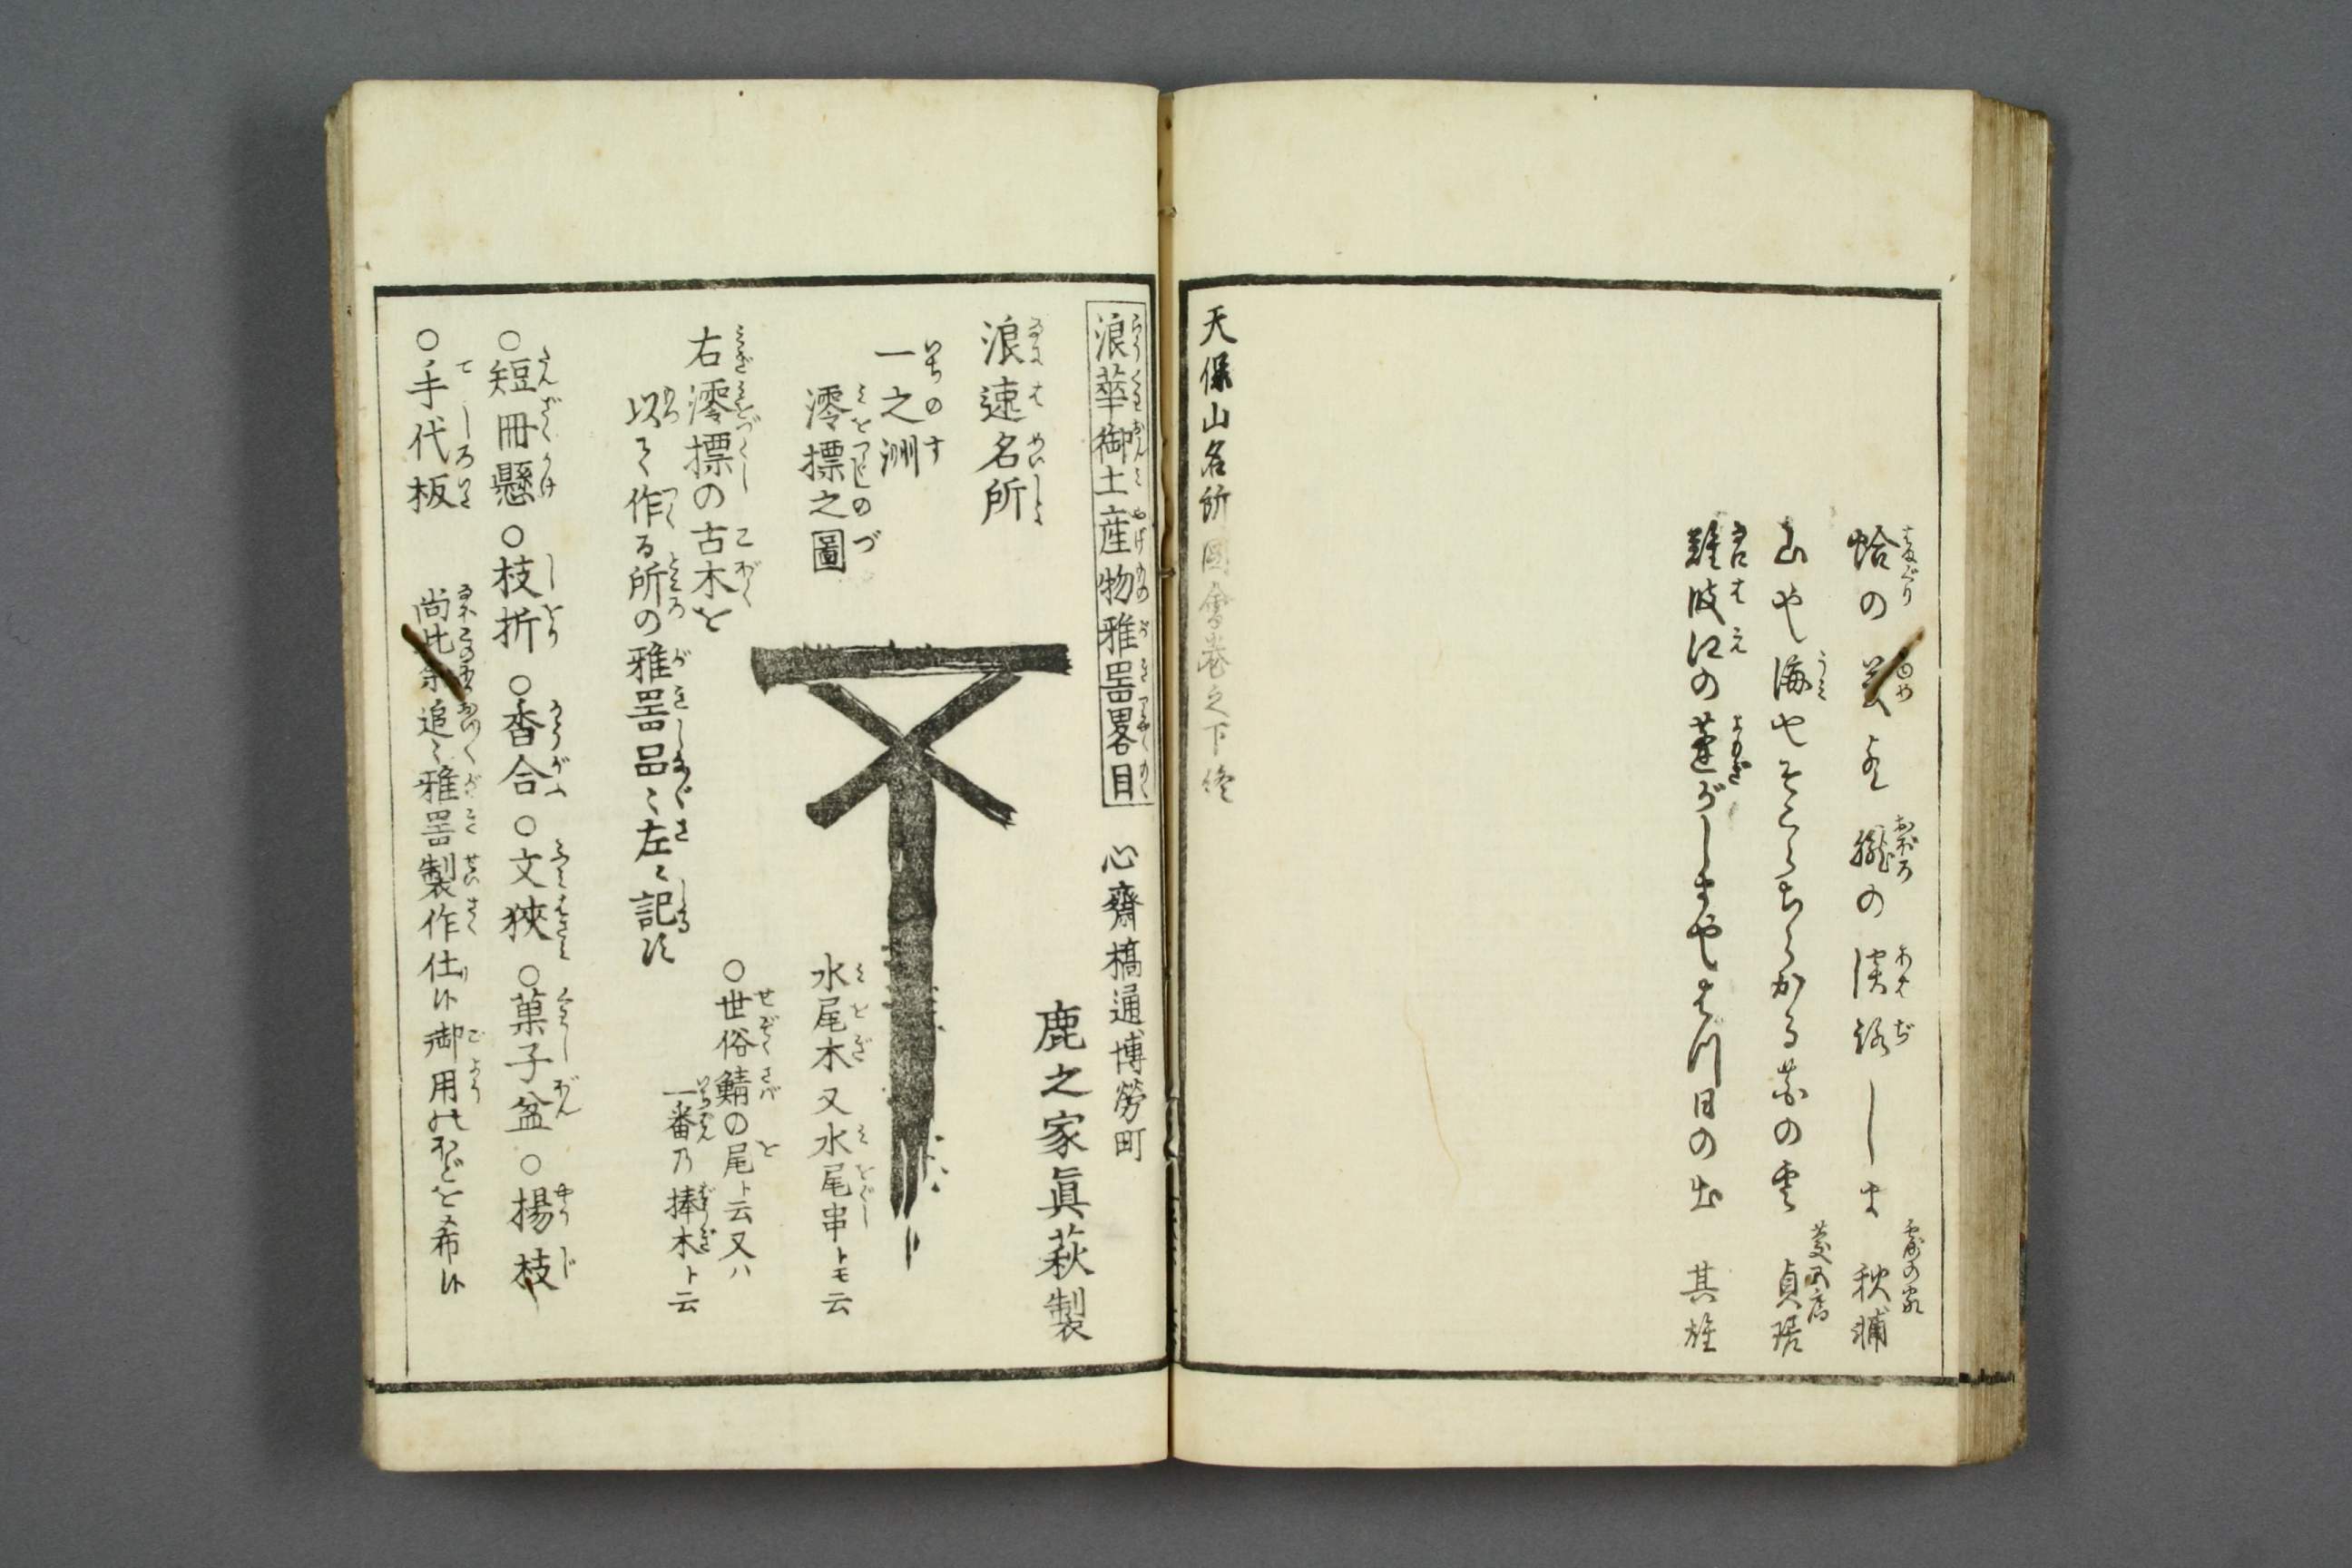 蛤の
朧の淡路しま 秋浦
山や海や
貞居
難波江の蓬がしまやはつ日の出 其雄
天保山名所圖會卷之下終
浪華御土産物雅噐畧目 心齋橋通博勞町
鹿之家眞萩製
浪速名所
一之洲
澪標之圖
水尾木又水尾串トモ云
○世俗鯖の尾ト云又ハ
一番乃捧木ト云
右澪標の古木を
以て作る所の雅噐品〻左ニ記ス
○短冊懸○枝折○香合○文狹○菓子盆○揚枝
○手代板 尚此余追〻雅噐製作仕候御用のほどを希候